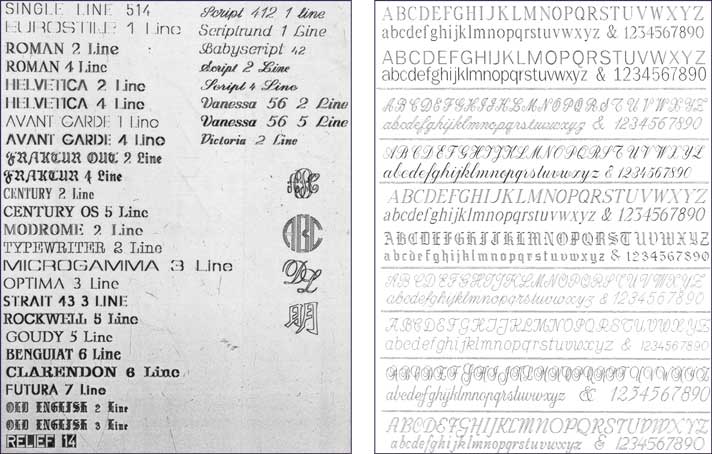 SINGLE LINE 514
EUROSTILE 1 Line
ROMAN 2 Line
ROMAN 4 Line
HELVETICA 2 Line
HELVETICA 4 Line
AVANT GARDE 1 Line
AVANT GARDE 4 Line
FRAKTUR OUT 2 Line
FRAKTUR 4 Line
CENTURY 2 Line
CENTURY OS 5 Line
MODROME 2 Line
TYPEWRITER 2 Line
MICROGAMMA 3 Line
OPTIMA 3 Line
STRAIT 43 3 LINE
ROCKWELL 5 Line
GOUDY 5 Line
BENGUIAT 6 Line
CLARENDON 6 Line
FUTURA 7 Line
OLD ENGLISH 2 Line
OLD ENGLISH 3 Line
RELIEF 14
Script 412 1 line
Scriptrund 1 Line
Babyscript 42
Script 2 Line
Script 4 Line
Vanessa 56 2 Line
Vanessa 56 5 Line
Victoria 2 Line
ABC
明
ABCDEFGHIJKLMNOPQRSTUVWXYZ
abcdefghijklmnopqrstuvwxyz & 1234567890
ABCDEFGHIJKLMOPQRSTUVWXYZ
abcdefghijklmnopqrstuvwxyz & 1234567890
ABCDEFGHIJKLMNOPQRSTUVWXYZ
abcdefghijklmnopqrstuvwxyz & 1234567890
ABCDEFGHIJKLMNOPQRSTUVWXYZ
abcdefghijklmnopqrstuvwxyz & 1234567890
ABCDEFGHIJKLMNOPQRSTUVWXYZ
abcdefghijklmnopqrstuvwxyz & 1234567890
ABCDEFGHIJKLMNOPQRSTUVWXYZ
abcdefghijklmnopqrstuvwxyz & 1234567890
ABCDEFGHIJKLMNOPQRSTUVWXYZ
abcdefghijklmnopqrstuvwxyz & 1234567890
ABCDEFGHIJKLMNOPQRSTUVWXYZ
abcdefghijklmnopqrstuvwxyz & 1234567890
ABCDEFGHIJKLMNOPQRSTUVWXYZ
abcdefghijklmnopqrstuvwxyz & 1234567890
ABCDEFGHIJKLMNOPQRSTUVWXYZ
abcdefghijklmnopqrstuvwxyz & 1234567890